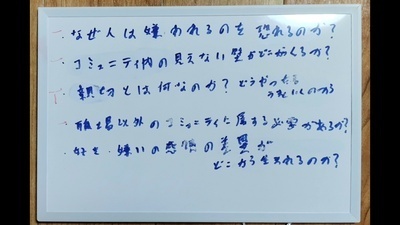 一. なぜ人は嫌われるのを恐れるのか?
一. コミュニティ内の見えない壁はどこからくる?
一. 親切とは何なのか? どうやったら
職場以外のコミュニティに属する必要があるか?
・好き・嫌いの感情の差異が
どこから生まれるのか?